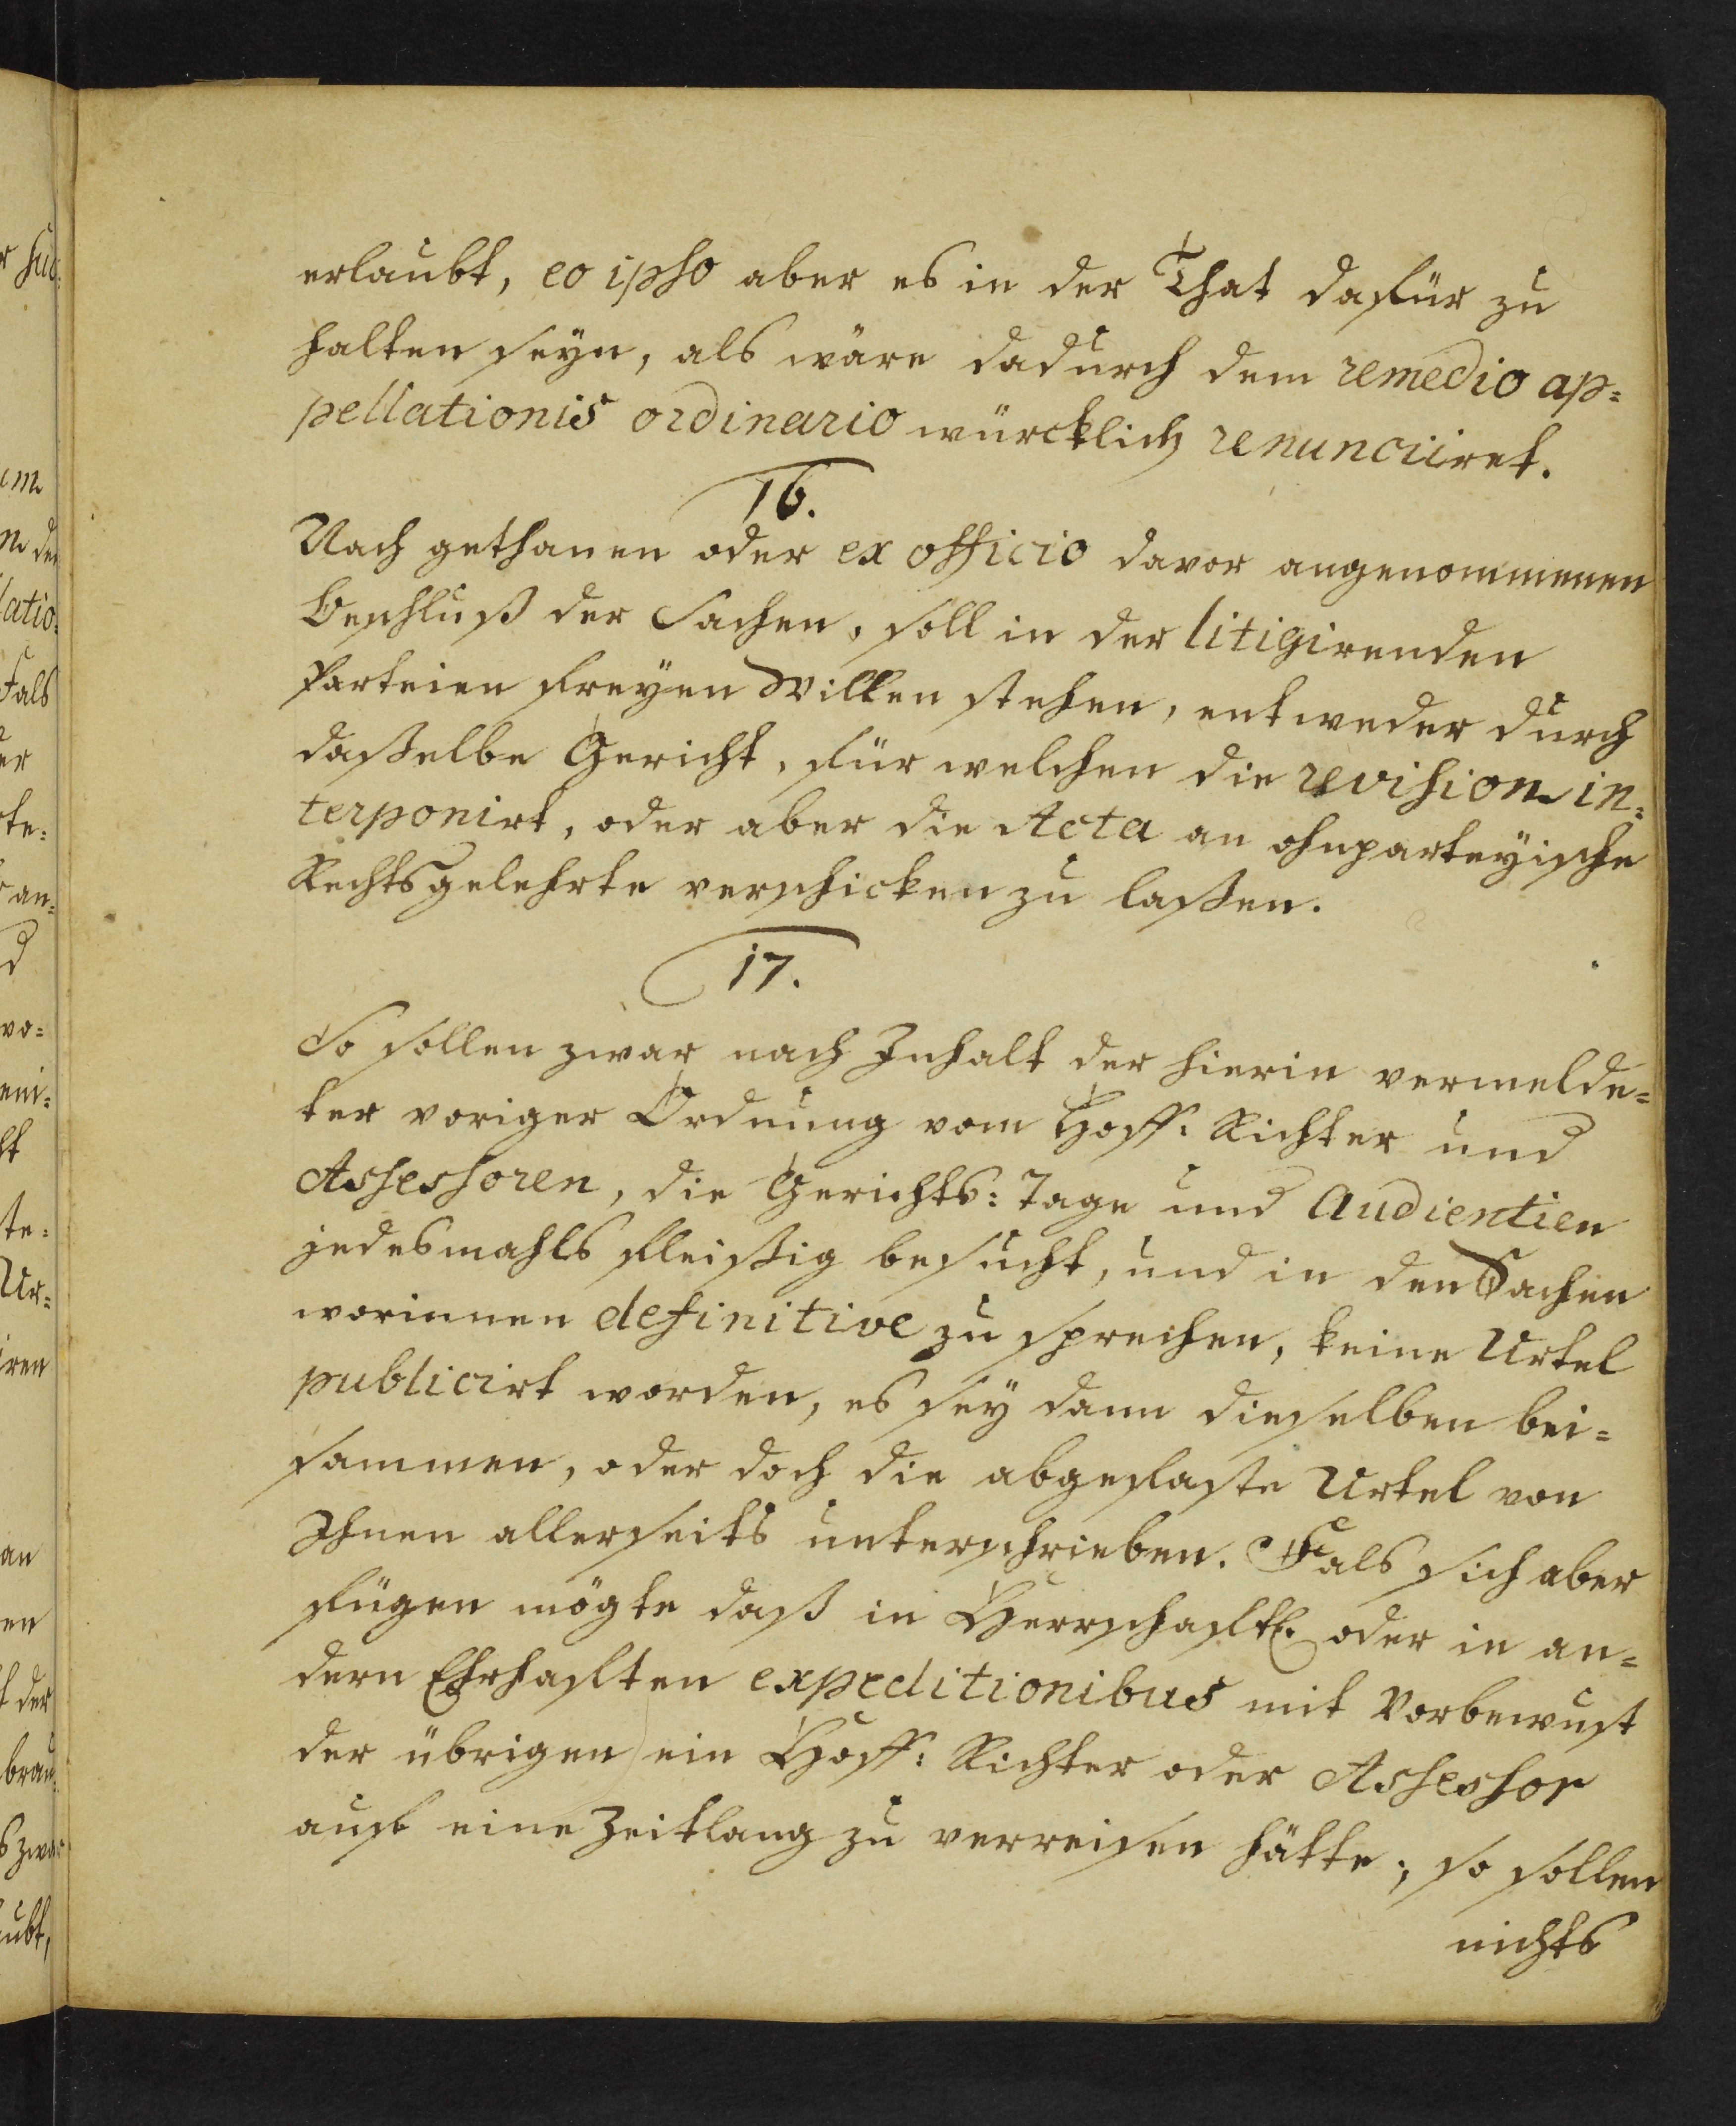 erlaubt, eo ipso aber es in der That dafür zu
halten seyn, als wäre dadurch dem remedio ap=
pellationis ordinario würcklich renunciiret.
16.
Nach gethanen oder ex officio davor angenommenen
Beschluß der Sachen, soll in der litigirenden
Parteien freyen Willen stehen, entweder durch
daßelbe Gericht, für welchen die revision in=
terponirt, oder aber die Acta an ohnparteyische
Rechtsgelehrte verschicken zu laßen.
17.
So sollen zwar nach Inhalt der hierin vermelde=
ter voriger Ordnung vom Hoff: Richter und
Assessoren, die Gerichts: Tage und Audientien
jedesmahls fleißig besucht, und in den Sachen
worinnen definitive zu sprechen, keine Urtel
publicirt worden, es sey dann dieselben bei=
sammen, oder doch die abgefaste Urtel von
Ihnen allerseits unterschrieben. Fals sich aber
fügen mögte daß in Herrschaftl. oder in an=
dern Ehrhafften expeditionibus mit Vorbewust
der übrigen ein Hoff: Richter oder Assessor
auf eine Zeitlang zu verreisen hätte; so sollen
nichts